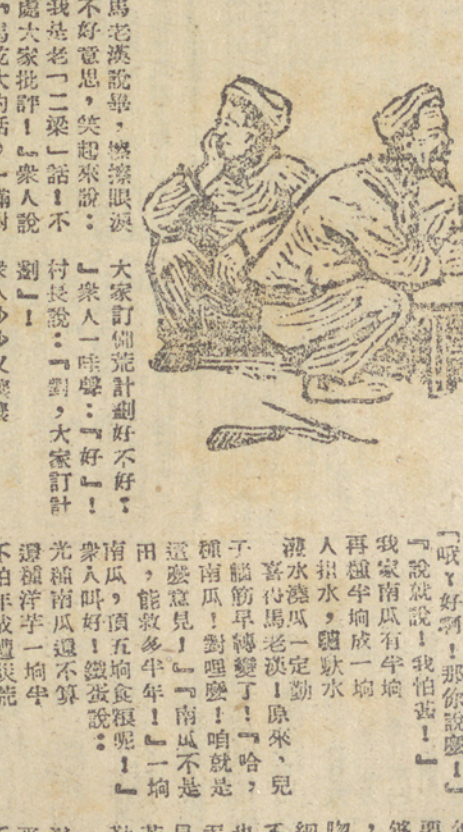 馬老漢說畢，擦擦眼淚
不好意思，笑起來說：
我是老「二梁」話！不
處大家批評！』眾人說
大家訂備荒計劃好不好：
』眾人一哇聲：『好』！
村長說：『對，大家訂計
劃』！
「哦ㄚ好啊！那你說麼！」
『說就說！我怕甚！』
我家南瓜有半垧
再種半垧成一垧
人担水，驢馱水
澆水澆瓜一定勤
喜得馬老漢！原來，兒
子腦筋早轉變了！『哈，
種南瓜！對哩麼！咱就是
這麼意見！』『南瓜不是
田，能救多半年！』一垧
南瓜，頂五垧食糧呢！』
眾人叫好！鐵蛋說：
光種南瓜還不算
還種洋芋一垧半
不怕年成遭災荒